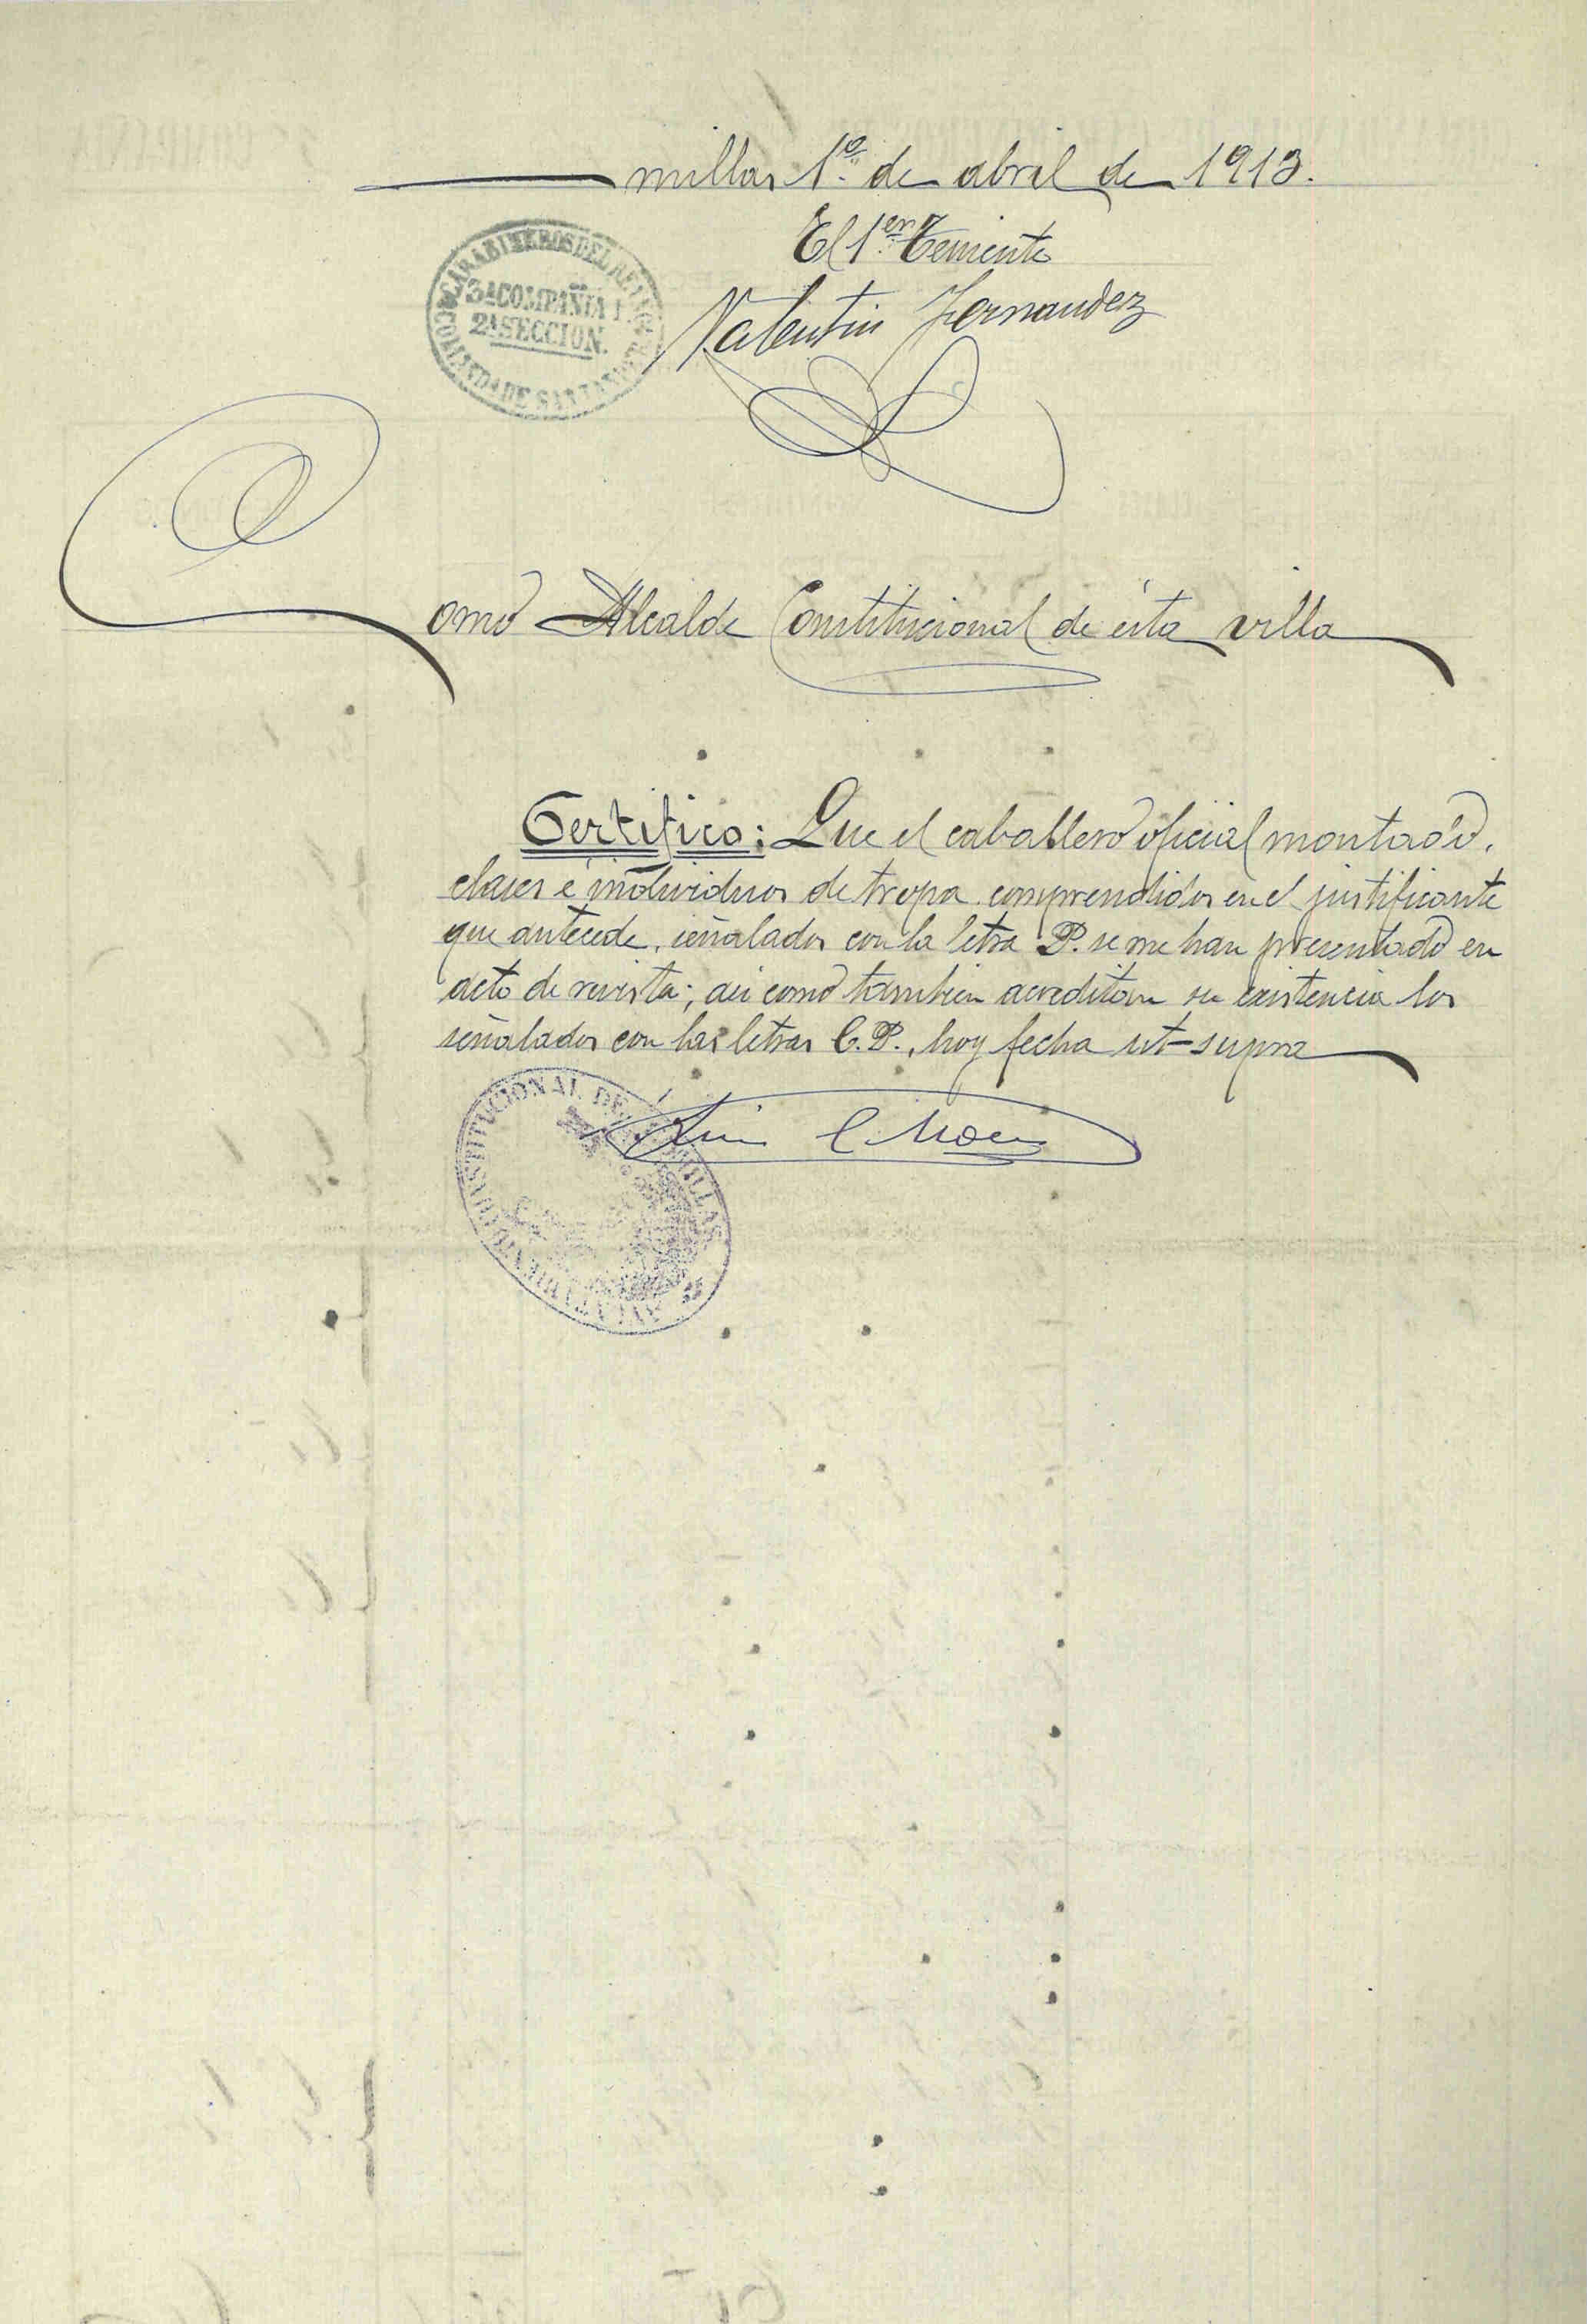 millas 1º de abril de 1913.
El 1er Teniente
Valentin Fernandez
CARABINEROS DEL REINO
3ª COMPAÑIA
2ª SECCION.
COMANDA DE SANTANDER
Como Alcalde Constitucional de ésta villa
Certifico: Que el caballero oficial montado,
clases e individuos de tropa comprendidos en el justificante
que antecede, señalados con la letra P. se me han presentado en
acto de revista; asi como tambien acreditan su existencia los
señalados con las letras C.P., hoy fecha ut-supra
CONSTITUCIONAL DE
MILLAS